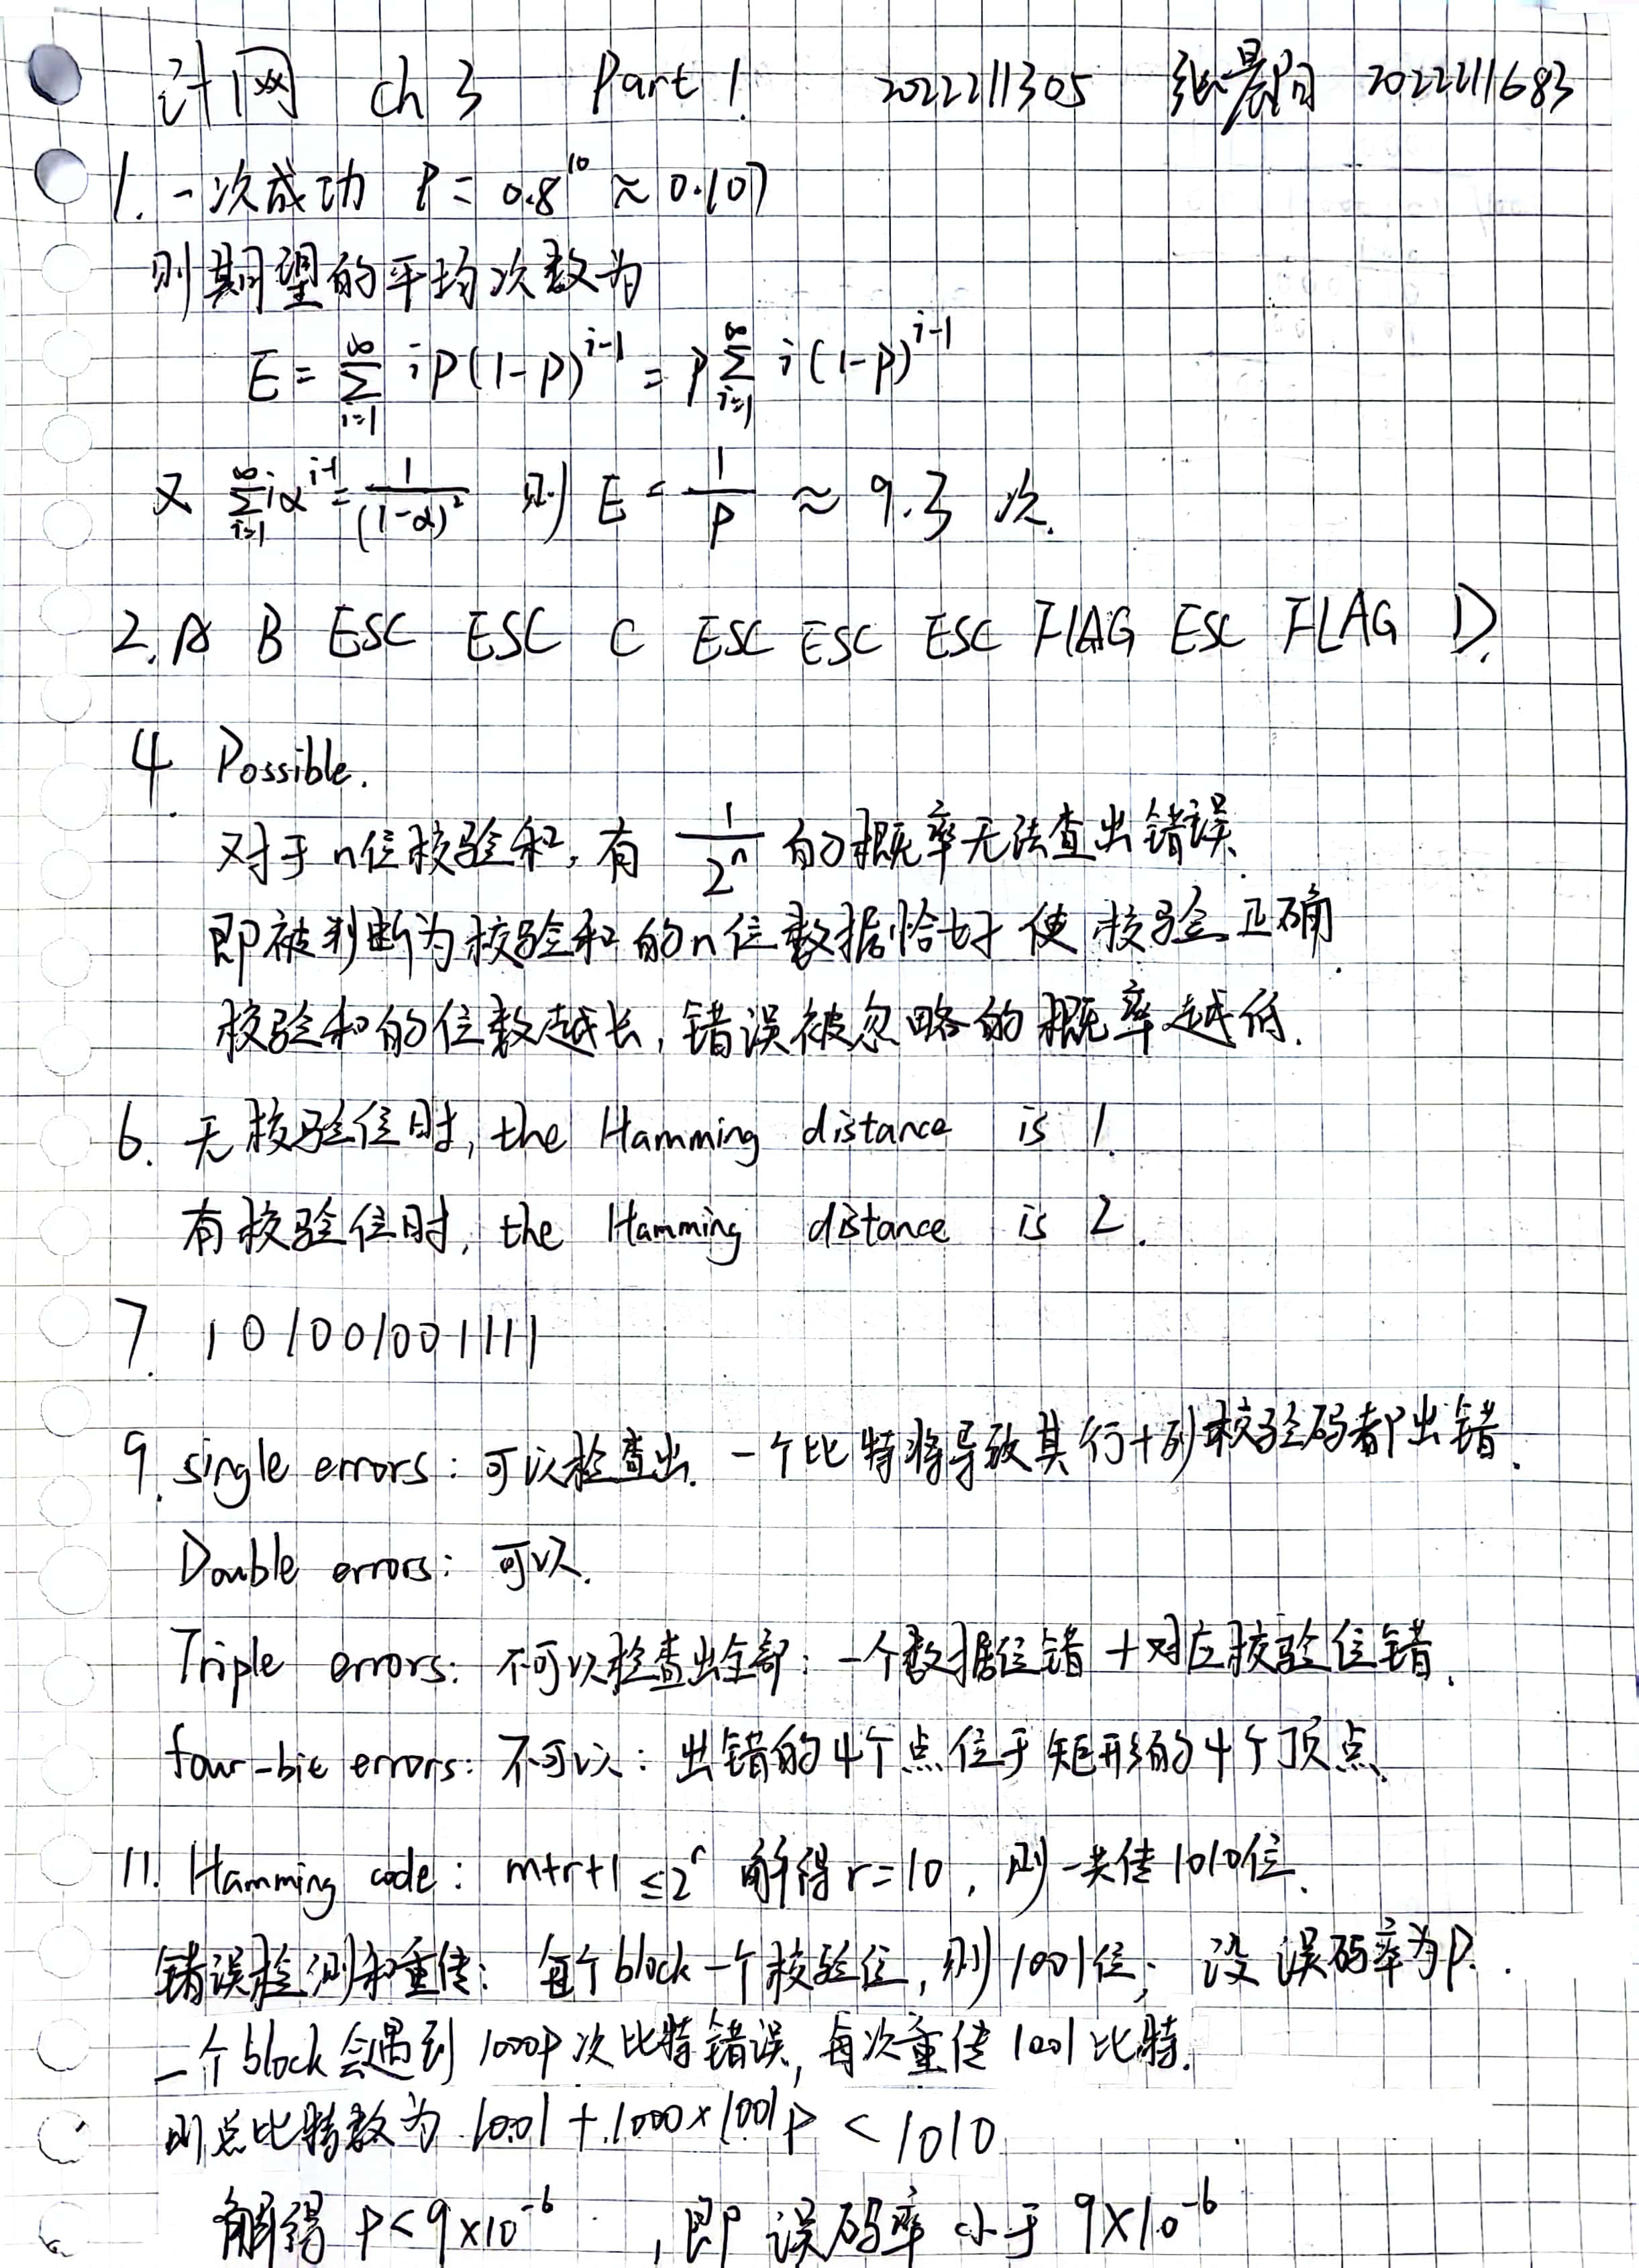 计网 ch 3 Part 1. 2022211305 张晨阳 2022211683
1. 一次成功 P = 0.8^10 ≈ 0.107
则期望的平均次数为
E = ∑_{i=1}^{∞} i p(1-p)^{i-1} = p ∑_{i=1}^{∞} i (1-p)^{i-1}
又 ∑_{i=1}^{∞} i α^{i-1} = 1/(1-α)^2 则 E = 1/p ≈ 9.3 次.
2. A B ESC ESC C ESC ESC ESC FLAG ESC FLAG D.
4. Possible.
对于n位校验和, 有 1/2^n 的概率无法查出错误.
即被判断为校验和的n位数据恰好使校验正确.
校验和的位数越长, 错误被忽略的概率越低.
6. 无校验位时, the Hamming distance is 1.
有校验位时, the Hamming distance is 2.
7. 101001001111
9. single errors: 可以检查出. 一个比特将导致其行+列校验码都出错.
Double errors: 可以.
Triple errors: 不可以检查出全部: 一个数据位错 + 对应校验位错.
four-bit errors: 不可以: 出错的4个点位于矩形的4个顶点.
11. Hamming code: m+r+1 ≤ 2^r 解得 r=10, 则一共传1010位.
错误检测和重传: 每个block一个校验位, 则1001位; 设误码率为P.
一个block会遇到1000P次比特错误, 每次重传1001比特.
则总比特数为 1001 + 1000×1001P < 1010
解得 P<9×10^-6, 即误码率小于 9×10^-6